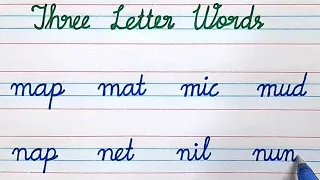 Three Letter Words
map mat mic mud
nap net nil nun